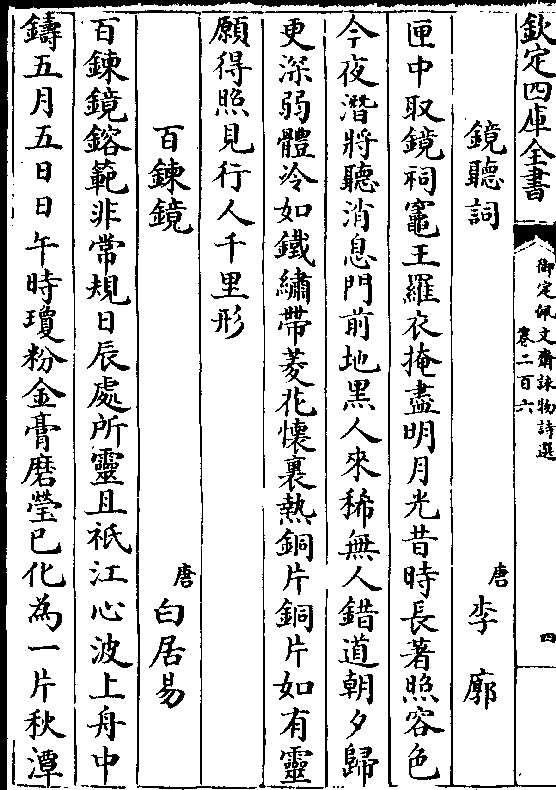 欽定四庫全書
御定佩文齋詠物詩選
卷二百六
四
鏡聽詞
唐 李廓
匣中取鏡祠竈王羅衣掩盡明月光昔時長著照容色
今夜潛將聽消息門前地黑人來稀無人錯道朝夕歸
更深弱體冷如鐵繡帶菱花懷裏熱銅片銅片如有靈
願得照見行人千里形
百鍊鏡
唐 白居易
百鍊鏡鎔範非常規日辰處所靈且祇江心波上舟中
鑄五月五日日午時瓊粉金膏磨瑩已化為一片秋潭